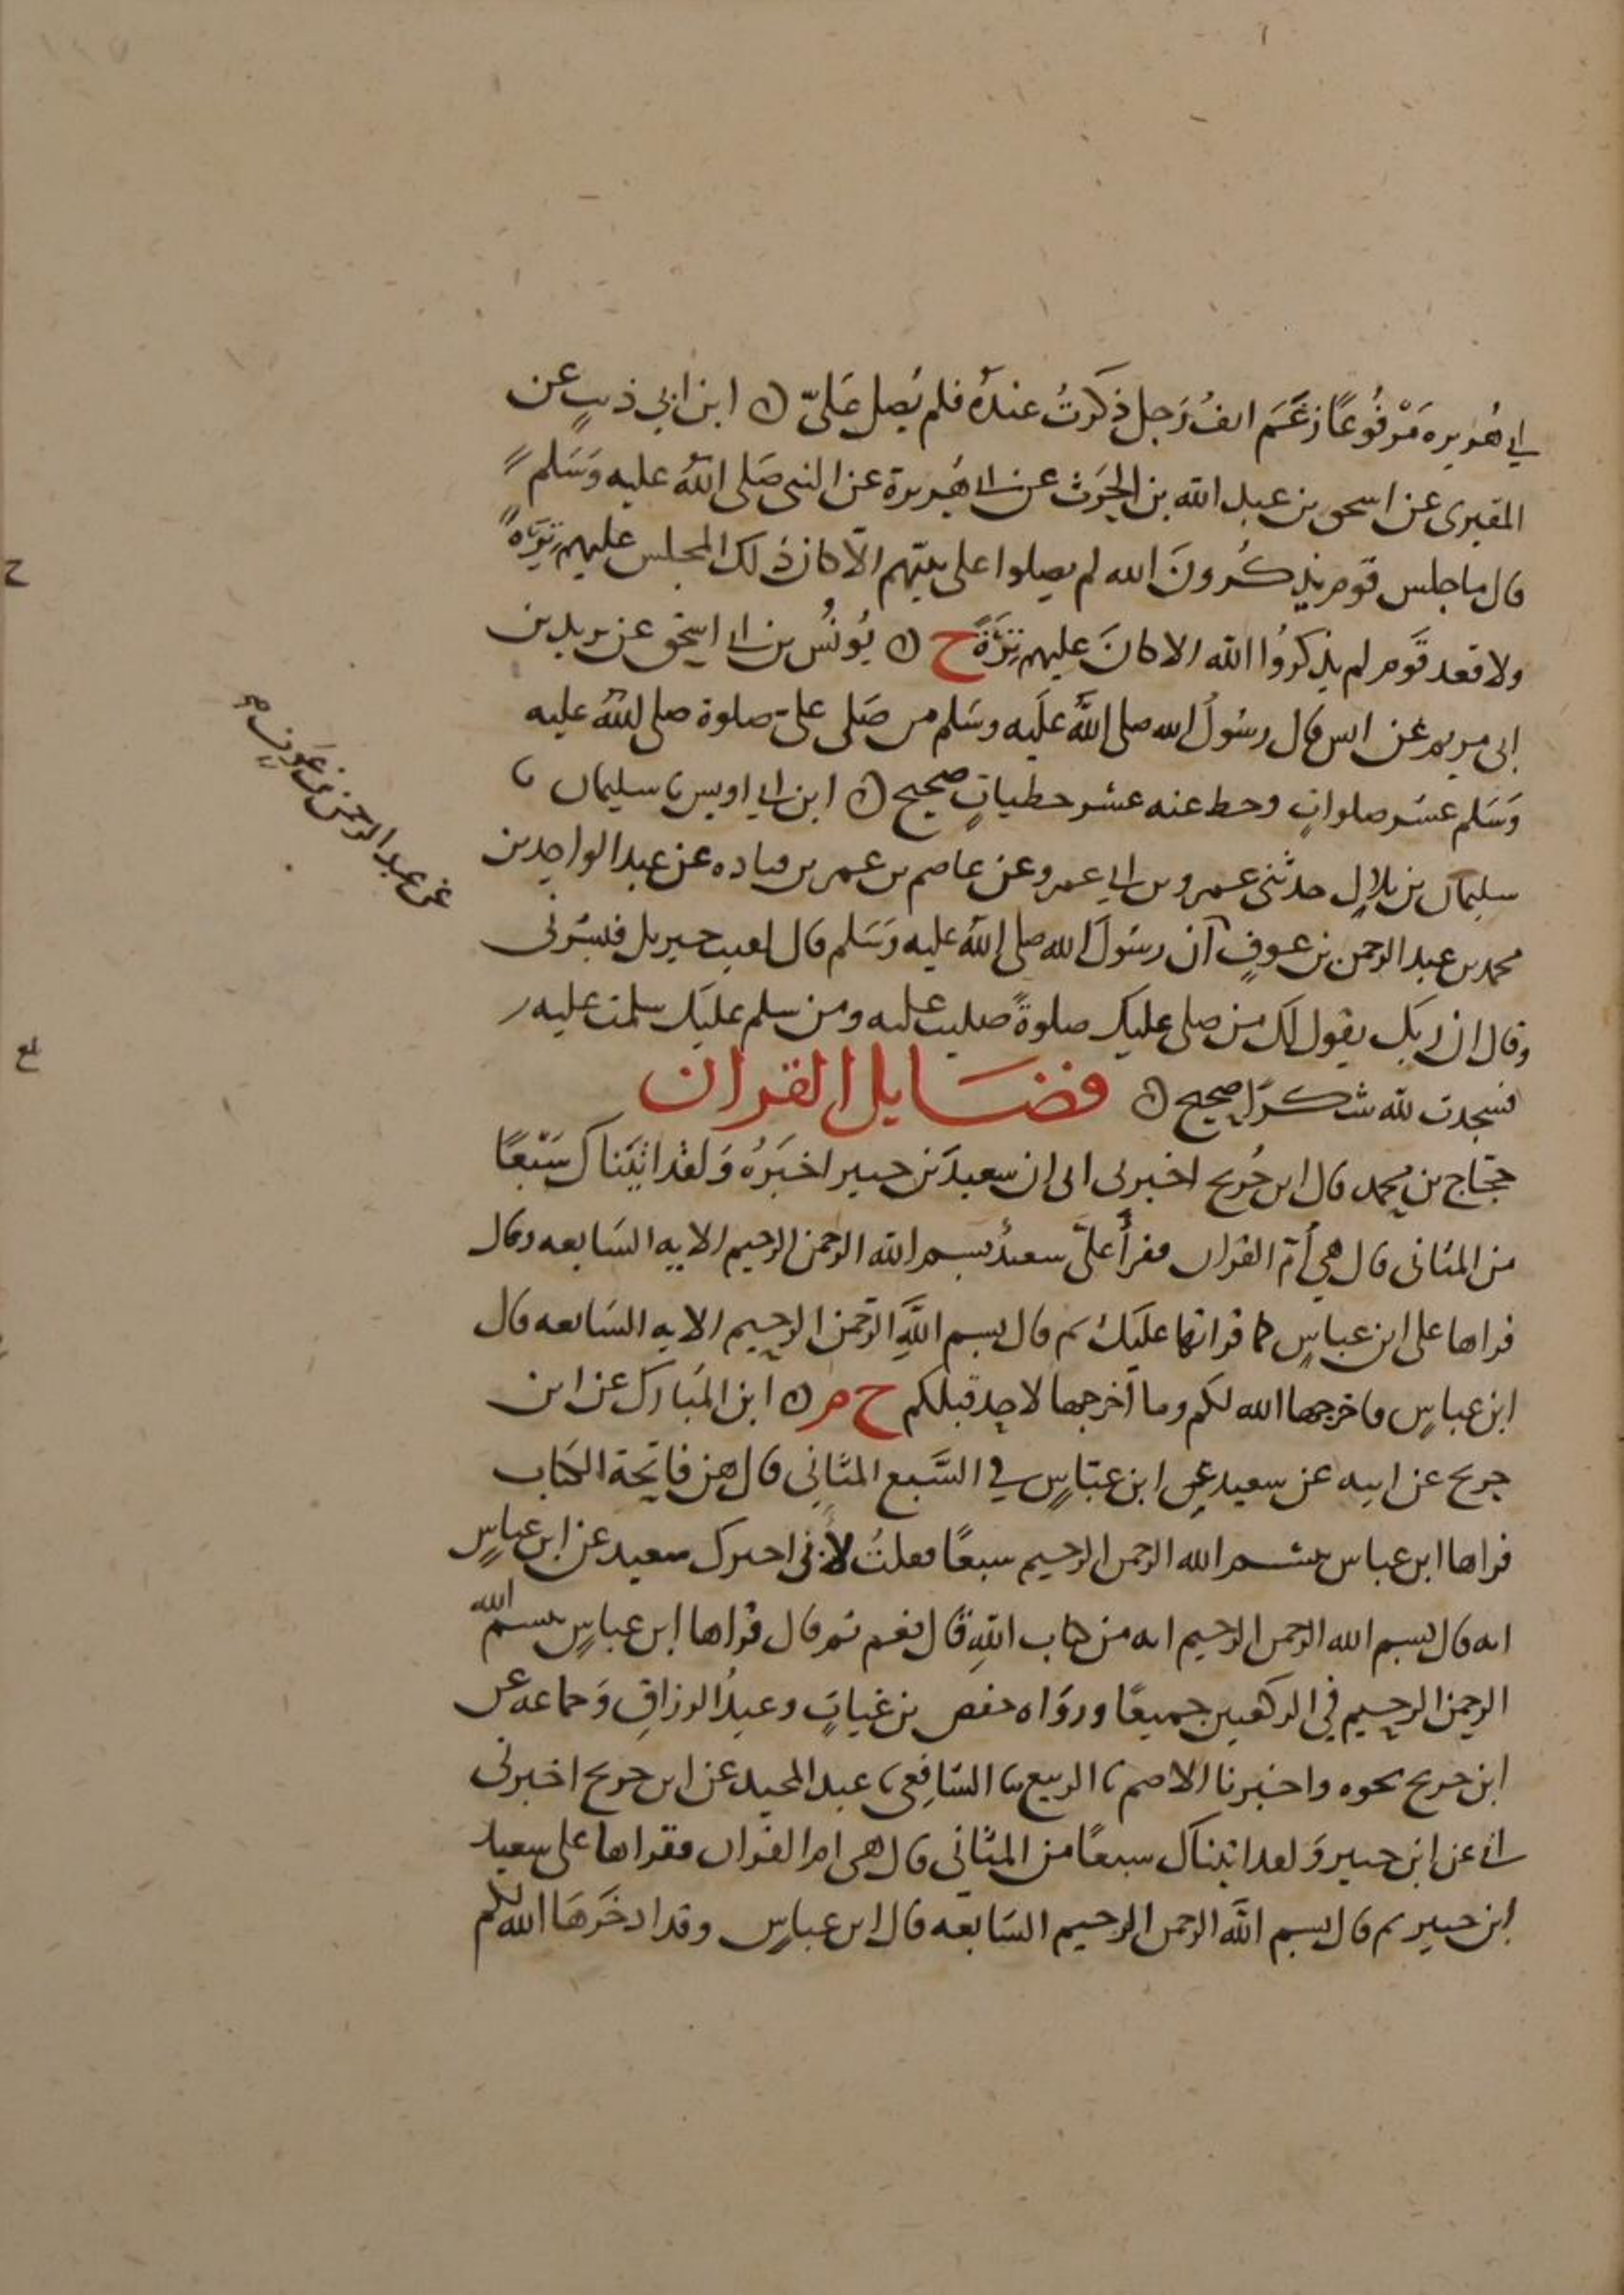 ابي هُريره مَرْفُوعًا رغَمَ انفُ رَجلٍ ذكرتُ عندَهُ فلم يُصلِ عَليّ ه ابن ابي ذيبٍ عن
المقبرى عن اسحق بن عبد الله بن الحَرِث عن ابي هُريرة عن النبي صَلى اللهُ عليه وَسَلم
قال ما جلس قوم يذكُرونَ الله لم يصلوا على نبيّهم الّا كان ذلك المجلس عليهم تِرَةً
ولا قعد قَوم لم يذكرُوا الله الا كانَ عليهم تِرَةً خ ه يُونُس بن ابي اسحق عن بريد بن
ابي مريم عن انس قال رسُولُ الله صلى اللهُ علَيه وسَلم من صَلى عليّ صلوة صلى اللهُ عليه
وَسَلم عشر صلواتٍ وحط عنه عشر خطياتٍ صحيح ه ابن ابي اويس نا سليمان نا
سليمان بن بلالٍ حدثنى عمرو بن ابي عمرو عن عاصم بن عمر بن قتاده عن عبد الواحد بن
محمد بن عبد الرحمن بن عوفٍ ان رسُولَ الله صلى اللهُ عليه وَسَلم قال لقيت جبريل فبشرنى
وقال ان ربك يقول لك من صلى عليك صلوةً صليت عليه ومن سلم عليك سلمت عليه
فسجدت لله شكرًا صحيح ه فضَايل القران
حجّاج بن محمد قال ابن جُريج اخبرنى ابي ان سعيدَ بن جبير اخبَرَهُ وَلقد اتَينَاك سَبْعًا
من المثانى قال هي أمّ القران وقرأ عليّ سعيدُ بسم الله الرحمن الرحيم الايه السَابعه وقال
قراها على ابن عباسٍ كما قراتها عليَك ثم قال بسم اللهِ الرّحمن الرحيم الايه السَابعه قال
ابن عباسٍ فاخرجها الله لكم وما اخرجها لاحدٍ قبلكم خ م ه ابن المُبَارك عن ابن
جريج عن ابيه عن سعيد عن ابن عبّاسٍ في السَّبع المثَانى قال هن فاتحة الكتاب
قراها ابن عباس بسم الله الرحمن الرحيم سبعًا فقلتُ لأبى اخبرك سعيد عن ابن عباسٍ
انه قال بسم الله الرحمن الرحيم ايه من كتاب اللهِ قال نعم ثم قال قراها ابن عباسٍ بسم الله
الرحمن الرحيم في الركعتين جميعًا وروَاه حفص بن غياثٍ وعبدُ الرزاقِ وَجماعه عن
ابن جريج نحوه واخبرنا الاصم نا الربيع نا الشافِعى نا عبد المجيد عن ابن جريج اخبرنى
ابي عن ابن جبير وَلقد اتيناك سبعًا من المثانى قال هى ام القران وقراها على سعيد
ابن جبير ثم قال بسم اللهِ الرحمن الرحيم السَابعه قال ابن عباسٍ وقد ادخَرَهَا الله لكم
عن عبد الرحمن بن عَوفٍ صح